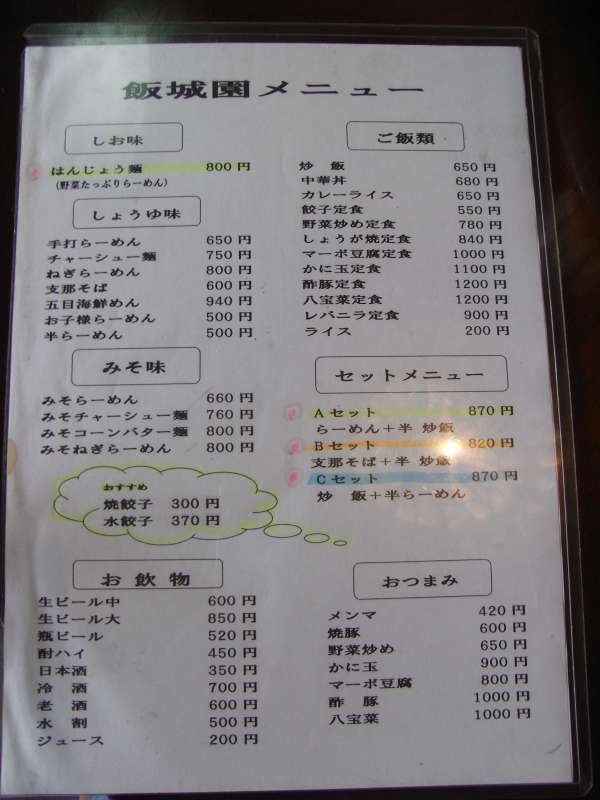 飯城園メニュー
しお味
はんじょう麺 800円
(野菜たっぷりらーめん)
しょうゆ味
手打らーめん 650円
チャーシュー麺 750円
ねぎらーめん 800円
支那そば 600円
五目海鮮めん 940円
お子様らーめん 500円
半らーめん 500円
みそ味
みそらーめん 660円
みそチャーシュー麺 760円
みそコーンバター麺 800円
みそねぎらーめん 800円
おすすめ
焼餃子 300円
水餃子 370円
お飲物
生ビール中 600円
生ビール大 850円
瓶ビール 520円
酎ハイ 450円
日本酒 350円
冷 酒 700円
老 酒 600円
水 割 500円
ジュース 200円
ご飯類
炒 飯 650円
中華丼 680円
カレーライス 650円
餃子定食 550円
野菜炒め定食 780円
しょうが焼定食 840円
マーボ豆腐定食 1000円
かに玉定食 1100円
酢豚定食 1200円
八宝菜定食 1200円
レバニラ定食 900円
ライス 200円
セットメニュー
Aセット 870円
らーめん+半 炒飯
Bセット 820円
支那そば+半 炒飯
Cセット 870円
炒 飯+半らーめん
おつまみ
メンマ 420円
焼豚 600円
野菜炒め 650円
かに玉 900円
マーボ豆腐 800円
酢 豚 1000円
八宝菜 1000円